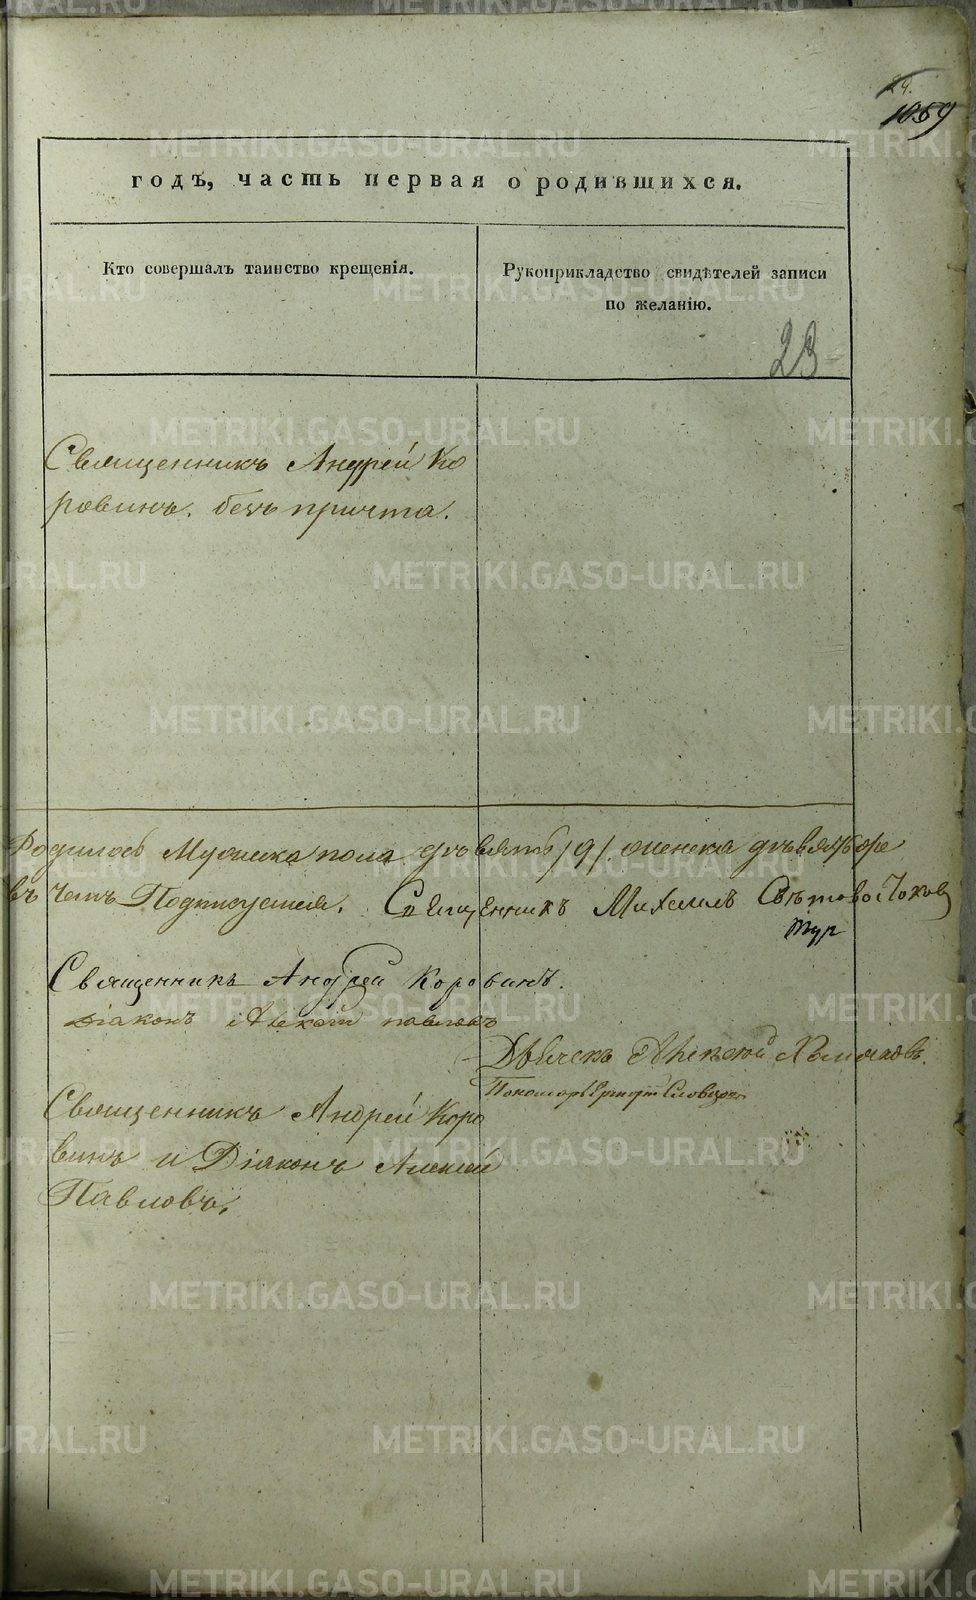 24.
1059
годъ, часть первая о родившихся.
Кто совершалъ таинство крещенія.
Рукоприкладство свидѣтелей записи
по желанію.
23
Священникъ Андрей Ко
ровинъ. безъ причта.
Родилось Мужеска пола девять /9/. женска
въ чемъ Подписуемся. Священникъ Михаилъ
Священникъ Андрей Коровинъ.
Діаконъ Алексѣй Павловъ
Дьячекъ Алексѣй
Пономарь Словцовъ
Священникъ Андрей Коро
винъ и Діаконъ Алексей
Павловъ.
METRIKI.GASO-URAL.RU